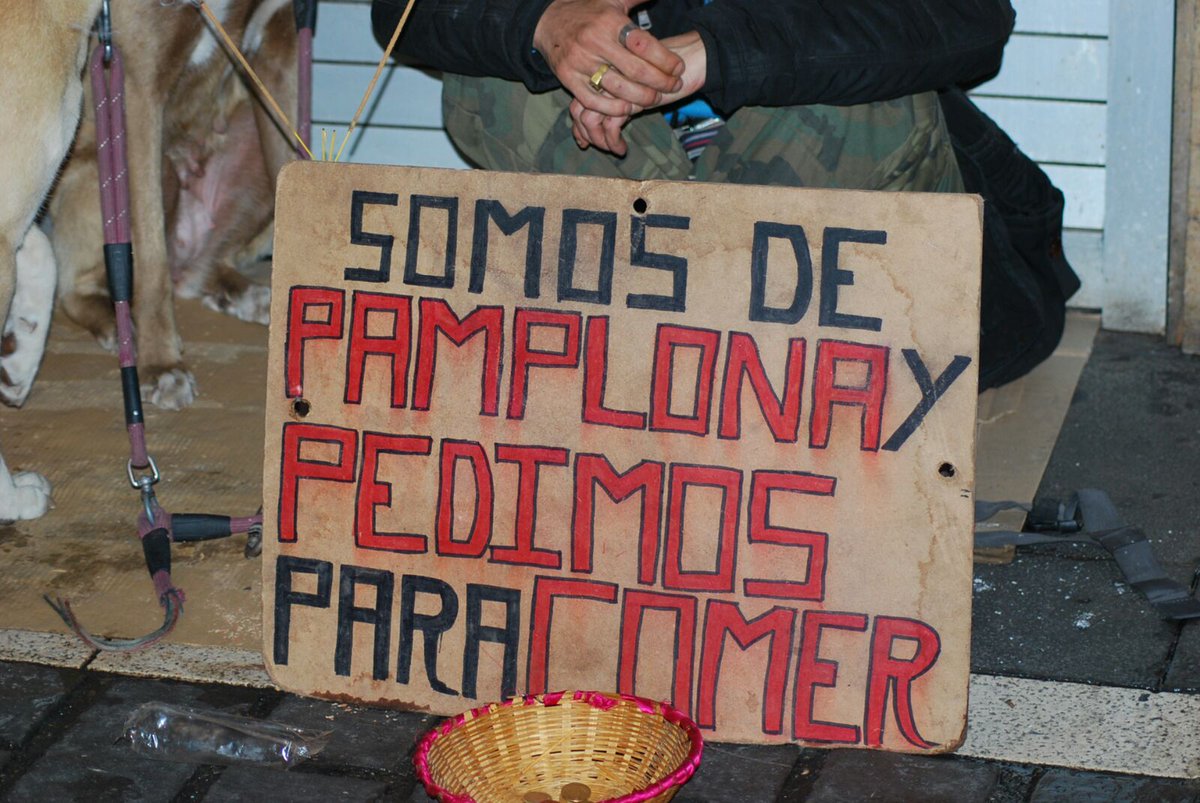 SOMOS DE
PAMPLONA Y
PEDIMOS
PARA COMER